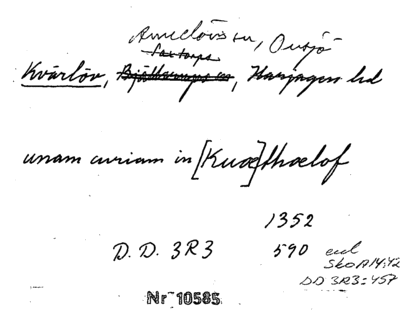 Annelövs sn, Onsjö
Saxtorps
Kvärlöv, Bjällerups sn, Harjagers hd
unam curiam in [Kuæ]thælof
1352
D. D. 3R3 590 enl
Sko A14:42
DD 3R3:457
Nr 10585